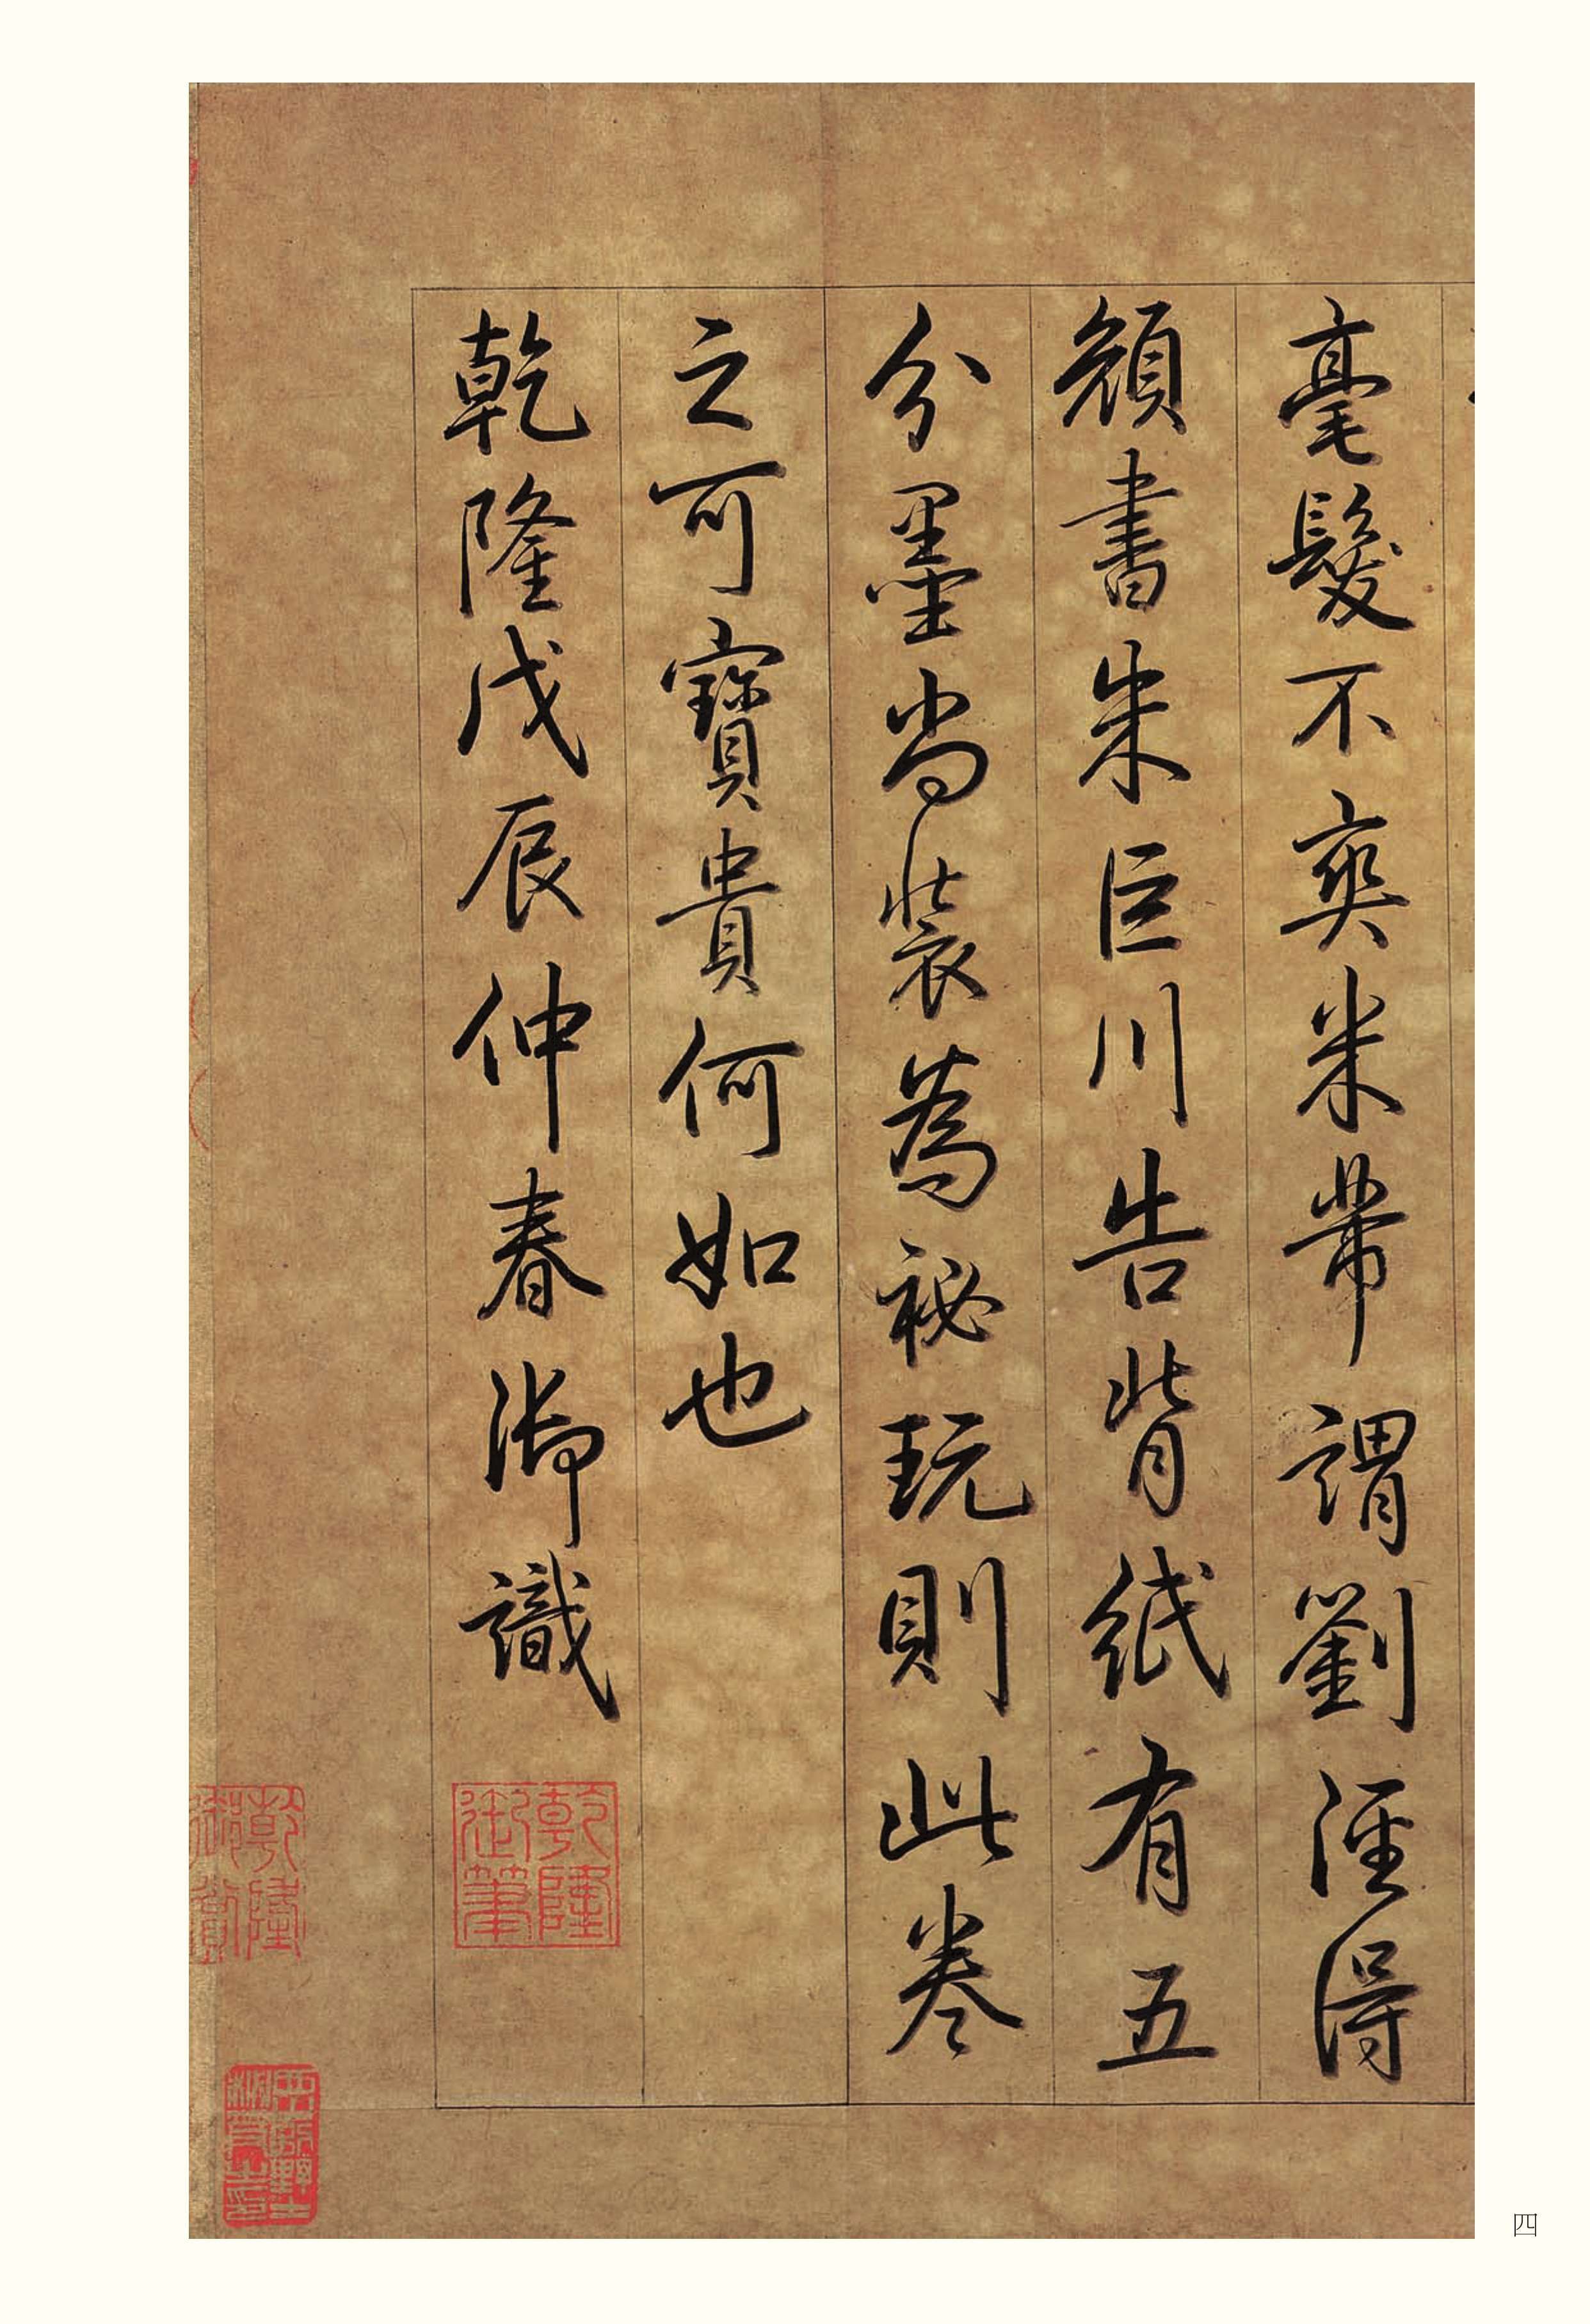 毫髮不爽米芾謂劉涇得
顏書朱巨川告背紙有五
分墨尚裝為祕玩則此卷
之可寶貴何如也
乾隆戊辰仲春御識
乾隆御筆
乾隆御賞
四